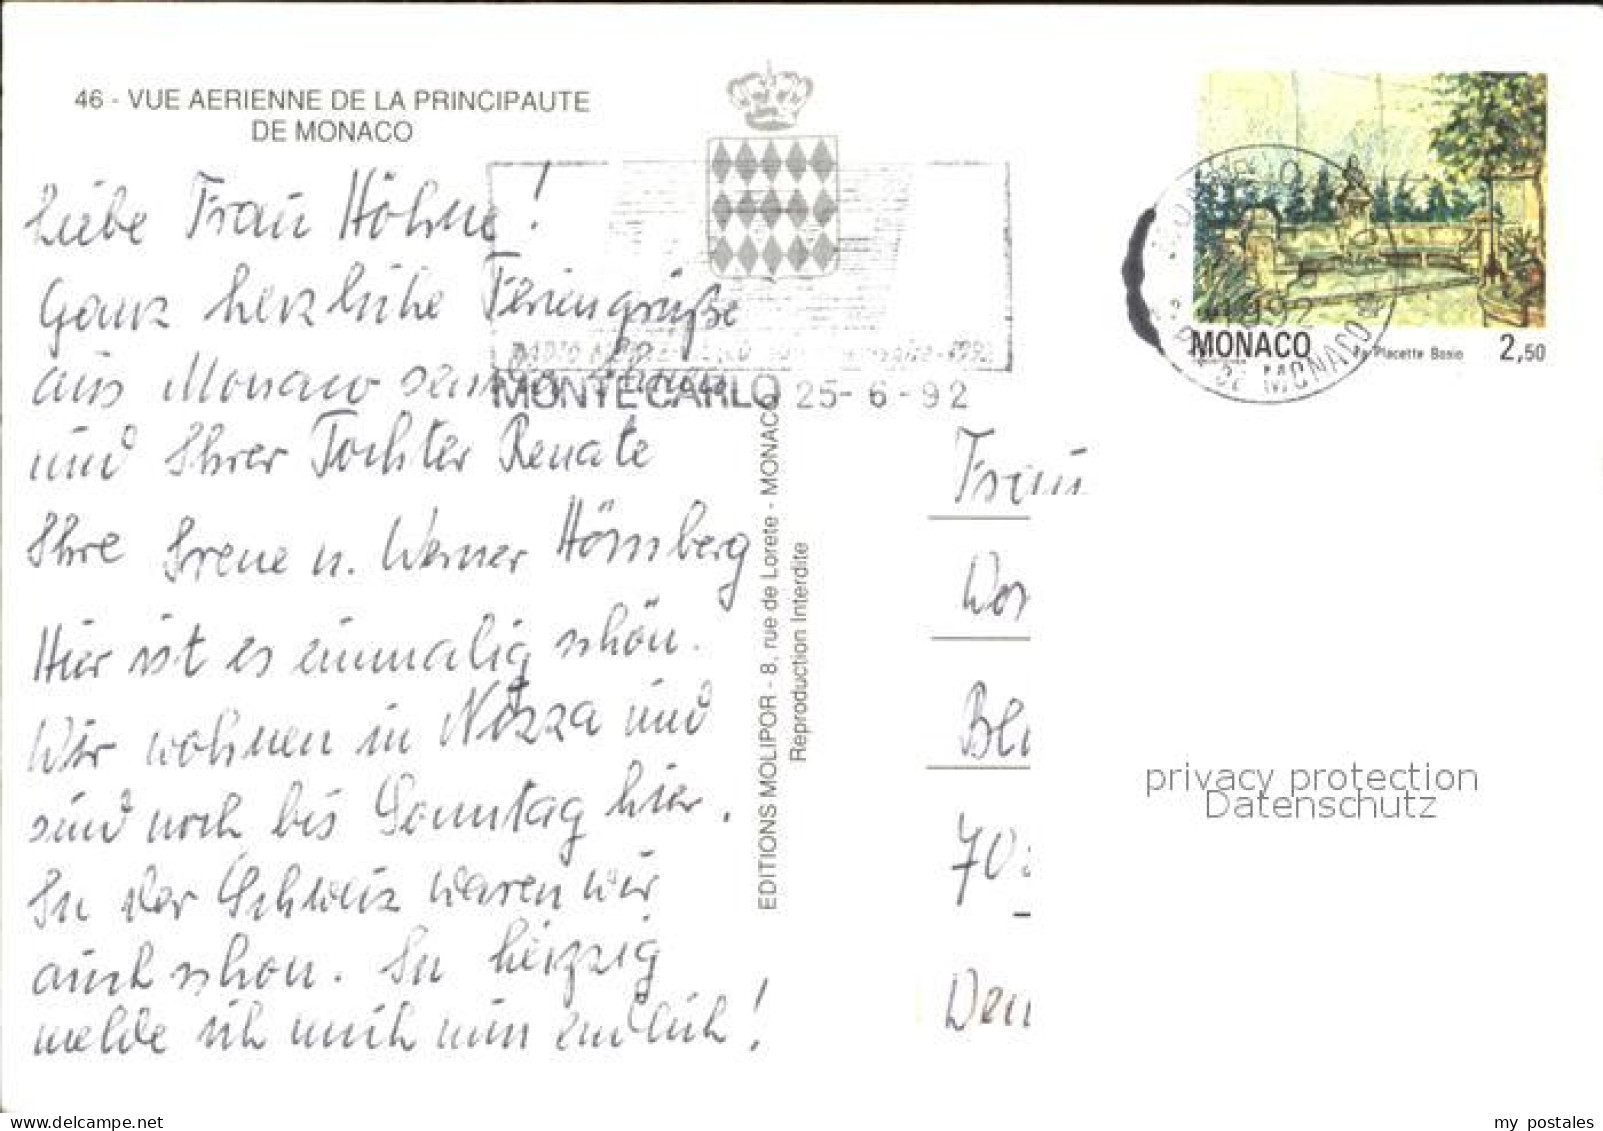 46 - VUE AERIENNE DE LA PRINCIPAUTE
DE MONACO
Liebe Frau Höhne!
Ganz herzliche Feriengrüße
aus Monaco senden Ihnen
und Ihrer Tochter Renate
Ihre Irene u. Werner Hörnberg
Hier ist es einmalig schön.
Wir wohnen in Nizza und
sind noch bis Sonntag hier.
In der Schweiz waren wir
auch schon. In Leipzig
melde ich mich nun endlich!
MONTE CARLO 25-6-92
EDITIONS MOLIPOR - 8, rue de Lorete - MONACO
Reproduction Interdite
MONACO
La Placette Bosio
2,50
1992
DE MONACO
Frau
Bl
70
privacy protection
Datenschutz
my postales